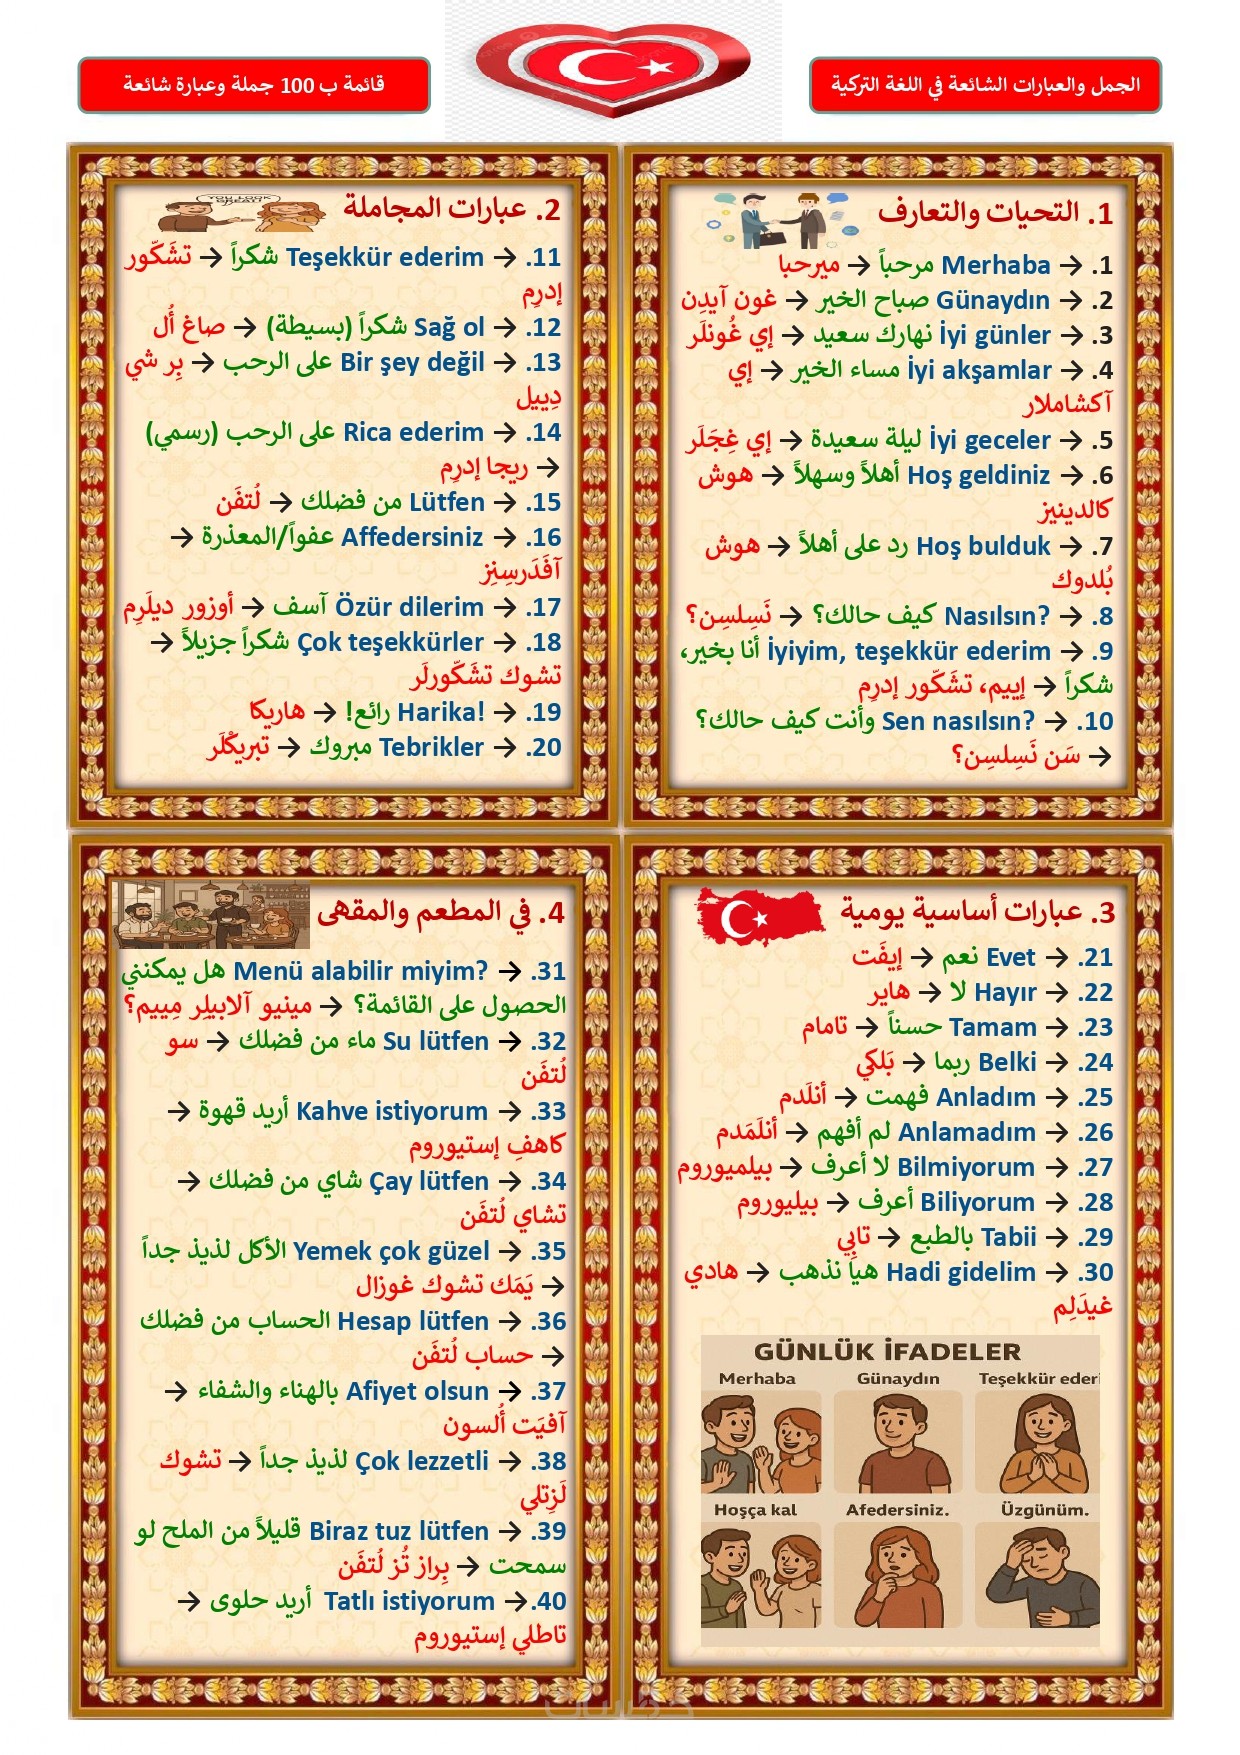 الجمل والعبارات الشائعة في اللغة التركية
قائمة ب 100 جملة وعبارة شائعة
1. التحيات والتعارف
1. → Merhaba مرحباً → ميرحبا
2. → Günaydın صباح الخير → غون آيدِن
3. → İyi günler نهارك سعيد → إي غُونلَر
4. → İyi akşamlar مساء الخير → إي
آكشاملار
5. → İyi geceler ليلة سعيدة → إي غِجَلَر
6. → Hoş geldiniz أهلاً وسهلاً → هوش
كالدينيز
7. → Hoş bulduk رد على أهلاً → هوش
بُلدوك
8. → Nasılsın? كيف حالك؟ → نَسِلسِن؟
9. → İyiyim, teşekkür ederim أنا بخير،
شكراً → إييم، تشَكّور إدرِم
10. → Sen nasılsın? وأنت كيف حالك؟
→ سَن نَسِلسِن؟
2. عبارات المجاملة
11. → Teşekkür ederim شكراً → تشَكّور
إدرِم
12. → Sağ ol شكراً (بسيطة) → صاغ أُل
13. → Bir şey değil على الرحب → بِر شي
دِييل
14. → Rica ederim على الرحب (رسمي)
→ ريجا إدرِم
15. → Lütfen من فضلك → لُتفَن
16. → Affedersiniz عفواً/المعذرة →
آفَدَرسِنِز
17. → Özür dilerim آسف → أوزور ديلَرِم
18. → Çok teşekkürler شكراً جزيلاً →
تشوك تشَكّورلَر
19. → Harika! رائع! → هاريكا
20. → Tebrikler مبروك → تبريكْلَر
3. عبارات أساسية يومية
21. → Evet نعم → إيفَت
22. → Hayır لا → هاير
23. → Tamam حسناً → تامام
24. → Belki ربما → بَلكي
25. → Anladım فهمت → أنلَدم
26. → Anlamadım لم أفهم → أنلَمَدم
27. → Bilmiyorum لا أعرف → بيلميوروم
28. → Biliyorum أعرف → بيليوروم
29. → Tabii بالطبع → تابِي
30. → Hadi gidelim هيا نذهب → هادي
غيدَلِم
GÜNLÜK İFADELER
Merhaba Günaydın Teşekkür ederi
Hoşça kal Afedersiniz. Üzgünüm.
4. في المطعم والمقهى
31. → Menü alabilir miyim? هل يمكنني
الحصول على القائمة؟ → مينيو آلابيلِر مِييم؟
32. → Su lütfen ماء من فضلك → سو
لُتفَن
33. → Kahve istiyorum أريد قهوة →
كاهفِ إستيوروم
34. → Çay lütfen شاي من فضلك →
تشاي لُتفَن
35. → Yemek çok güzel الأكل لذيذ جداً
→ يَمَك تشوك غوزال
36. → Hesap lütfen الحساب من فضلك
→ حساب لُتفَن
37. → Afiyet olsun بالهناء والشفاء →
آفيَت أُلسون
38. → Çok lezzetli لذيذ جداً → تشوك
لَزِتلي
39. → Biraz tuz lütfen قليلاً من الملح لو
سمحت → بِراز تُز لُتفَن
40.→ Tatlı istiyorum أريد حلوى →
تاطلي إستيوروم